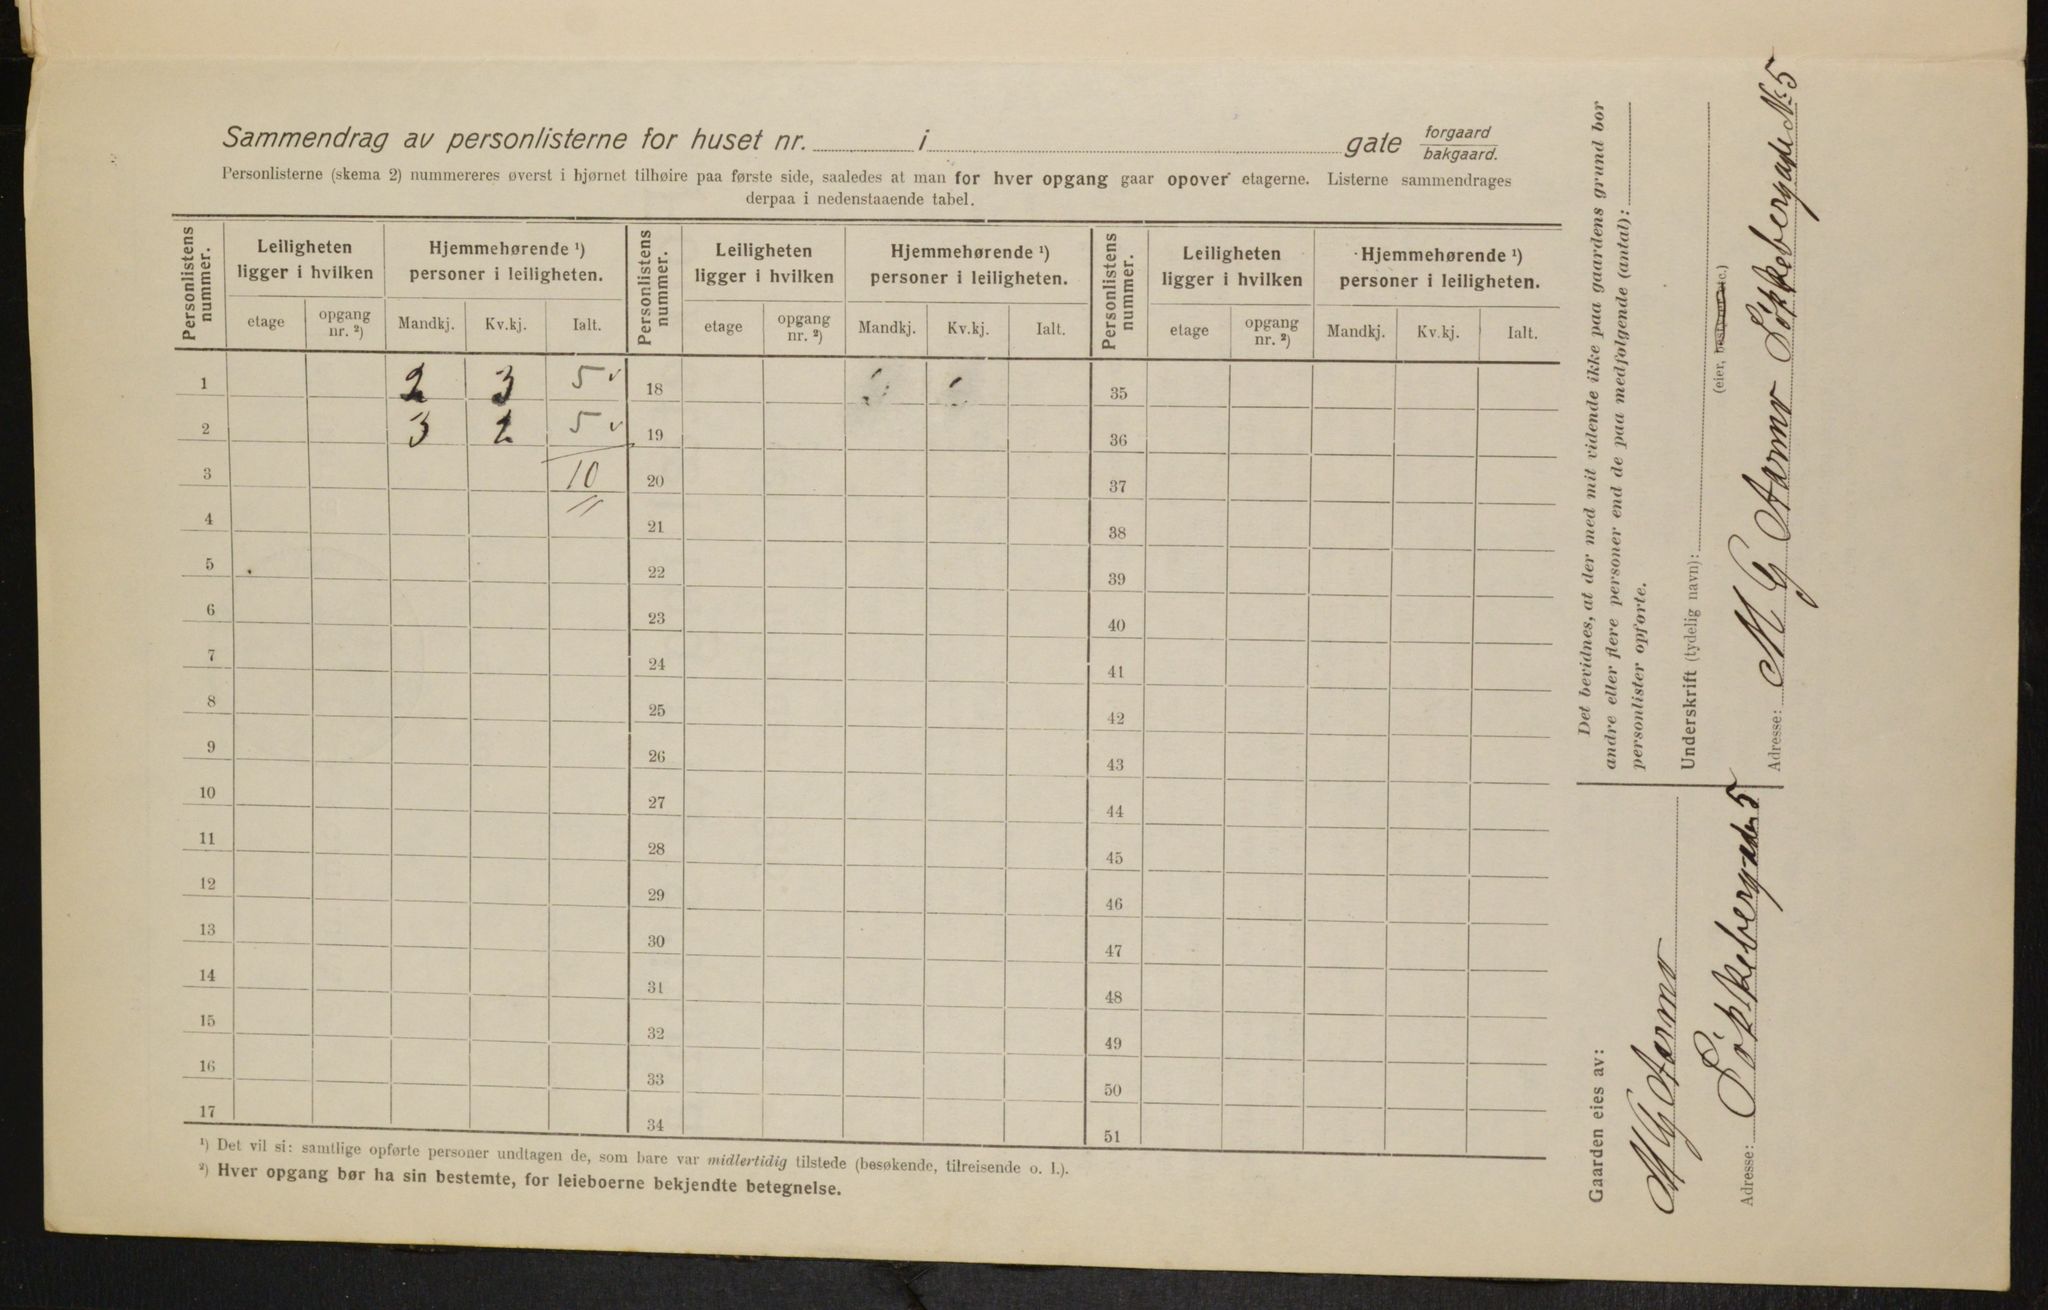 Sammendrag av personlisterne for huset nr. i gate forgaard bakgaard.
Personlisterne (skema 2) nummereres øverst i hjørnet tilhøire paa første side, saaledes at man for hver opgang gaar opover etagerne. Listerne sammendrages
derpaa i nedenstaaende tabel.
Personlistens nummer. Leiligheten ligger i hvilken Hjemmehørende ¹) personer i leiligheten. Personlistens nummer. Leiligheten ligger i hvilken Hjemmehørende ¹) personer i leiligheten. Personlistens nummer. Leiligheten ligger i hvilken Hjemmehørende ¹) personer i leiligheten.
etage opgang nr. ²) Mandkj. Kv.kj. Ialt. etage opgang nr. ²) Mandkj. Kv.kj. Ialt. etage opgang nr. ²) Mandkj. Kv.kj. Ialt.
1 2 3 5 v 18 35
2 3 2 5 v 19 36
3 10 20 37
4 21 38
5 22 39
6 23 40
7 24 41
8 25 42
9 26 43
10 27 44
11 28 45
12 29 46
13 30 47
14 31 48
15 32 49
16 33 50
17 34 51
¹) Det vil si: samtlige opførte personer undtagen de, som bare var midlertidig tilstede (besøkende, tilreisende o. l.).
²) Hver opgang bør ha sin bestemte, for leieboerne bekjendte betegnelse.
Det bevidnes, at der med mit vidende ikke paa gaardens grund bor
andre eller flere personer end de paa medfølgende (antal):
personlister opførte.
Underskrift (tydelig navn):
(eier, bestyrer etc.)
Adresse: M G Aarnv Løkkebergade No 5
Gaarden eies av:
M G Aarnv
Adresse: Løkkebergaden 5